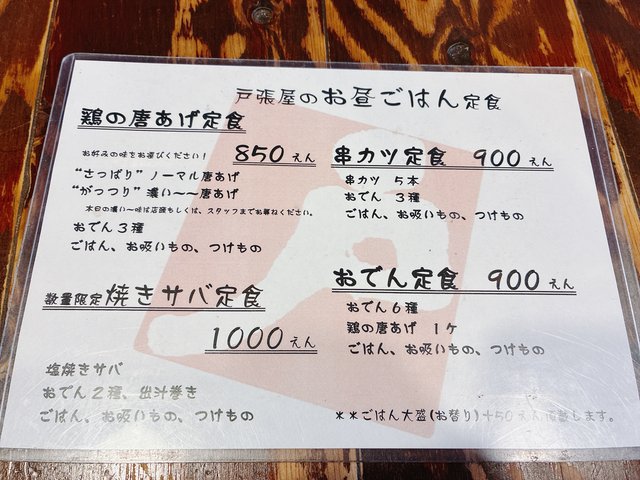 戸張屋のお昼ごはん定食
鶏の唐あげ定食
お好みの味をお選びください! 850えん
“さっぱり” ノーマル唐あげ
“がっつり” 濃い〜〜唐あげ
本日の濃い〜味は店頭もしくは、スタッフまでお尋ねください。
おでん3種
ごはん、お吸いもの、つけもの
数量限定 焼きサバ定食
1000えん
塩焼きサバ
おでん2種、出汁巻き
ごはん、お吸いもの、つけもの
串カツ定食 900えん
串カツ 5本
おでん 3種
ごはん、お吸いもの、つけもの
おでん定食 900えん
おでん6種
鶏の唐あげ 1ケ
ごはん、お吸いもの、つけもの
**ごはん大盛(お替り)+50えん します。